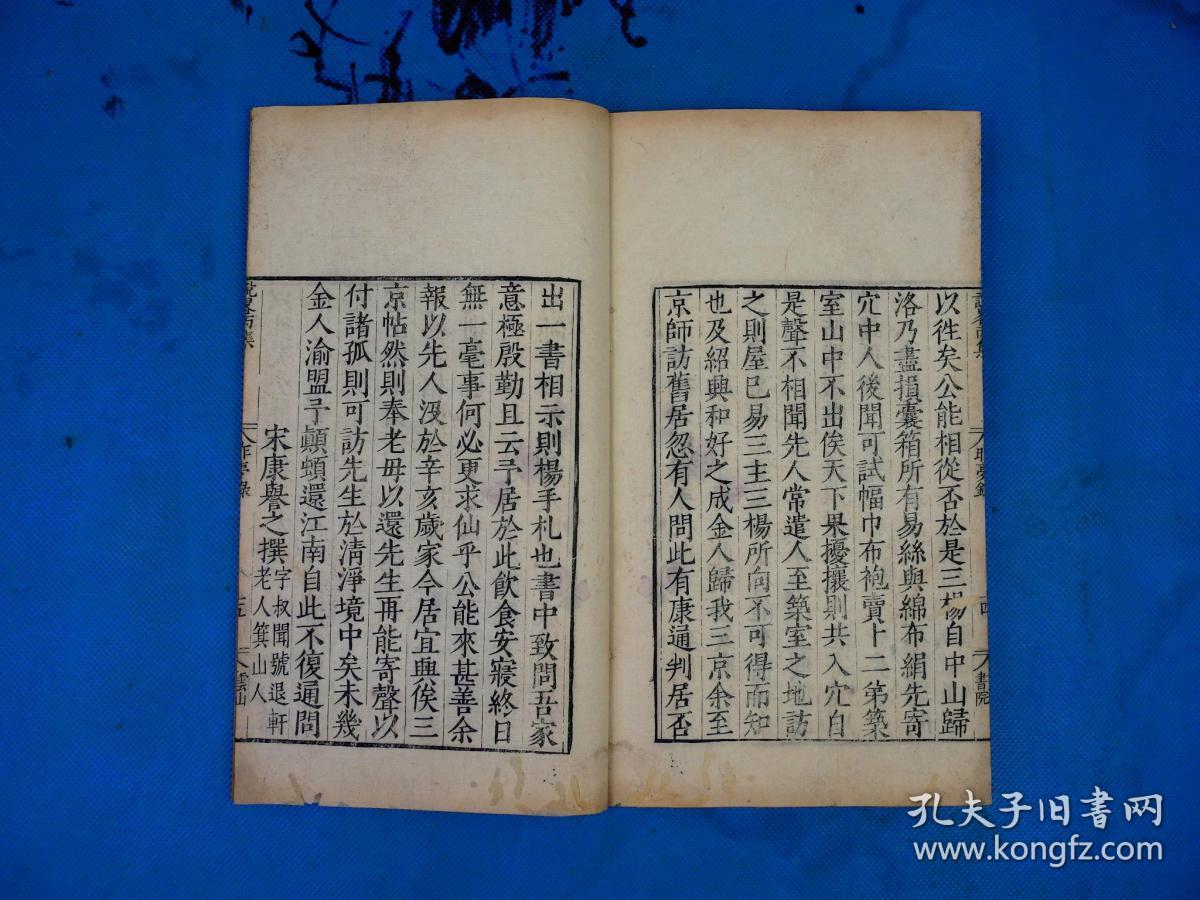 以徃矣公能相從否於是三楊自中山歸
洛乃盡損囊箱所有易絲與綿布絹先寄
穴中人後聞可試幅巾布袍賣卜二第築
室山中不出俟天下果擾攘則共入穴自
是聲不相聞先人常遣人至築室之地訪
之則屋已易三主三楊所向不可得而知
也及紹興和好之成金人歸我三京余至
京師訪舊居忽有人問此有康通判居否
出一書相示則楊手札也書中致問吾家
意極殷勤且云予居於此飲食安寢終日
無一毫事何必更求仙乎公能來甚善余
報以先人沒於辛亥歲家今居宜興俟三
京帖然則奉老母以還先生再能寄聲以
付諸孤則可訪先生於清淨境中矣未幾
金人渝盟予顛頓還江南自此不復通問
宋康譽之撰 字叔聞號退軒
老人箕山人
昨夢錄
四
書院
昨夢錄
五
雲山
孔夫子旧书网
www.kongfz.com